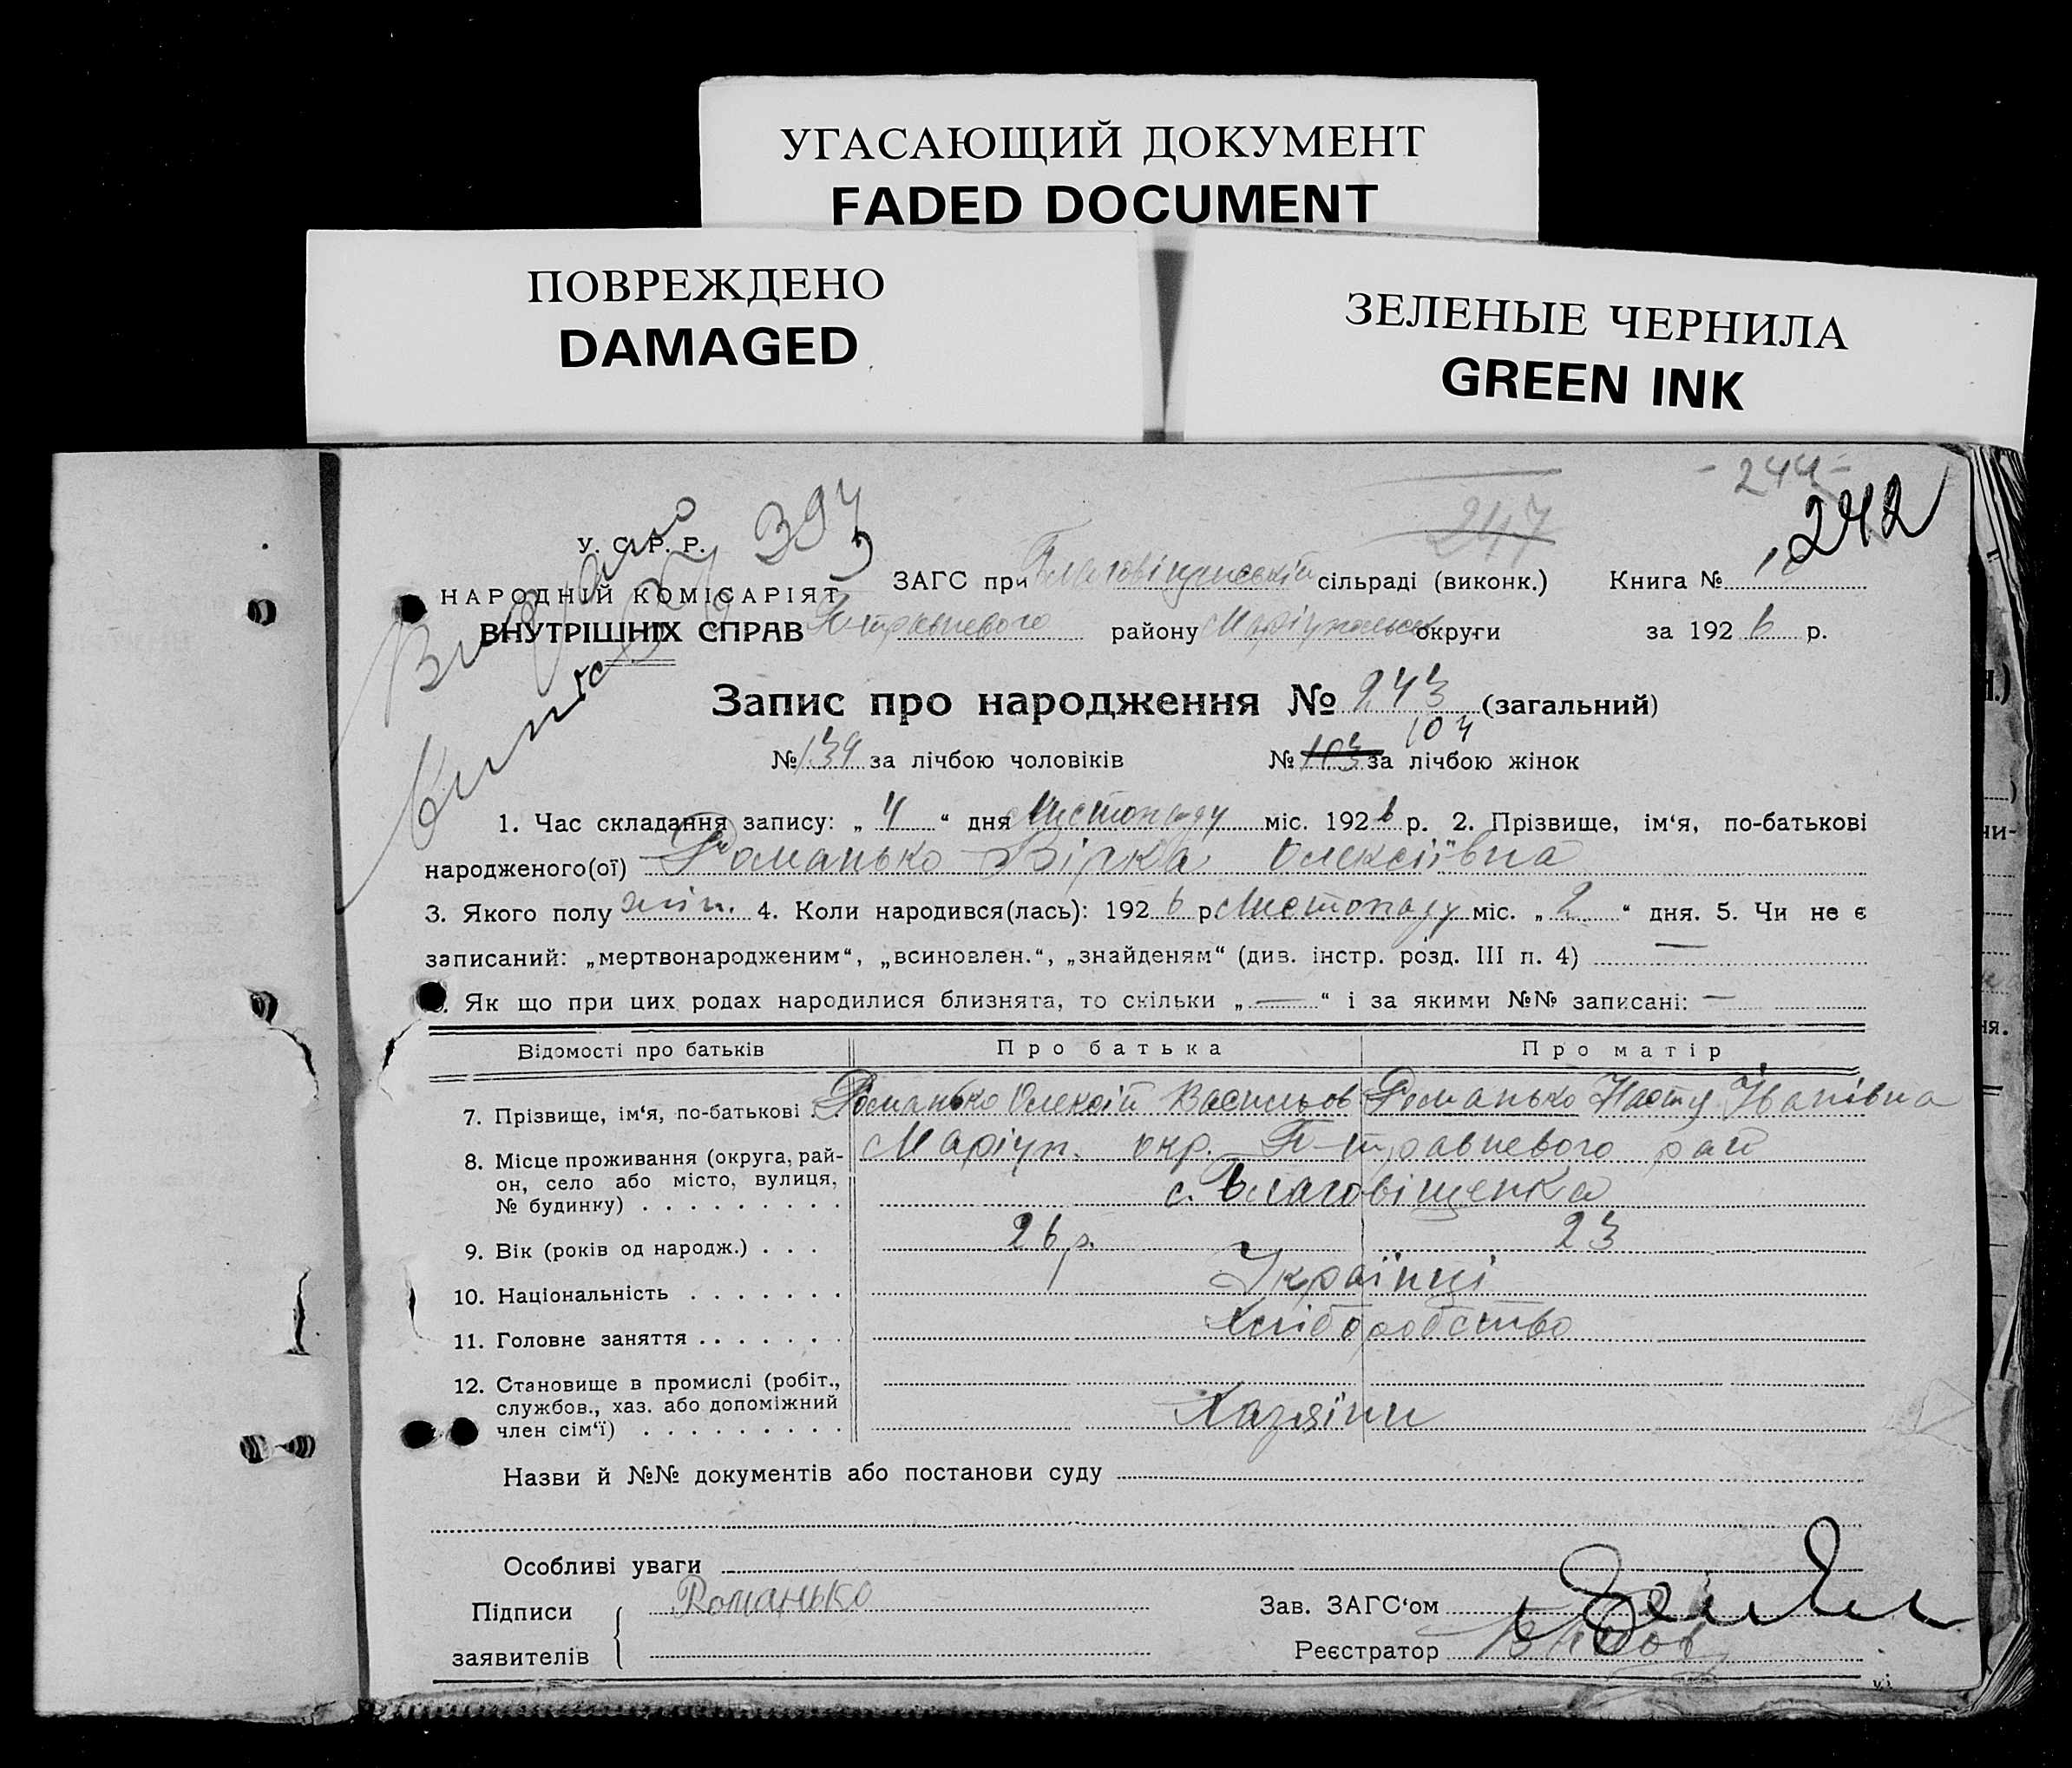 УГАСАЮЩИЙ ДОКУМЕНТ
FADED DOCUMENT
ПОВРЕЖДЕНО
DAMAGED
ЗЕЛЕНЫЕ ЧЕРНИЛА
GREEN INK
- 244 -
242
247
Видано
394
У. С. Р. Р.
НАРОДНІЙ КОМІСАРІЯТ
ВНУТРІШНІХ СПРАВ
ЗАГС при Благовіщенській сільраді (виконк.) Книга №
П-травневого району Маріупольськ округи за 1926 р.
Запис про народження № 243 (загальний)
104
№ 139 за лічбою чоловіків № 103 за лічбою жінок
1. Час складання запису: „ 4 “ дня Листопаду міс. 1926 р. 2. Прізвище, ім‘я, по-батькові
народженого(ої) Романько Вірка Олексіївна
3. Якого полу жін. 4. Коли народився(лась): 1926 р Листопаду міс. „ 2 “ дня. 5. Чи не є
записаний: „мертвонародженим“, „всиновлен.“, „знайденям“ (див. інстр. розд. III п. 4) —
Як що при цих родах народилися близнята, то скільки „ — “ і за якими №№ записані: —
Відомості про батьків Про батька Про матір
7. Прізвище, ім‘я, по-батькові Романько Олексій Васильов Романько Настя Іванівна
8. Місце проживання (округа, рай- Маріуп. окр. П-травневого рай
он, село або місто, вулиця, с. Благовіщенка
№ будинку)
9. Вік (років од народж.) 26 р. 23
10. Національність Українці
11. Головне заняття Хліборобство
12. Становище в промислі (робіт.,
службов., хаз. або допоміжний Хазяїни
член сім‘ї)
Назви й №№ документів або постанови суду
Особливі уваги
Підписи Романько Зав. ЗАГС‘ом
заявителів Реєстратор